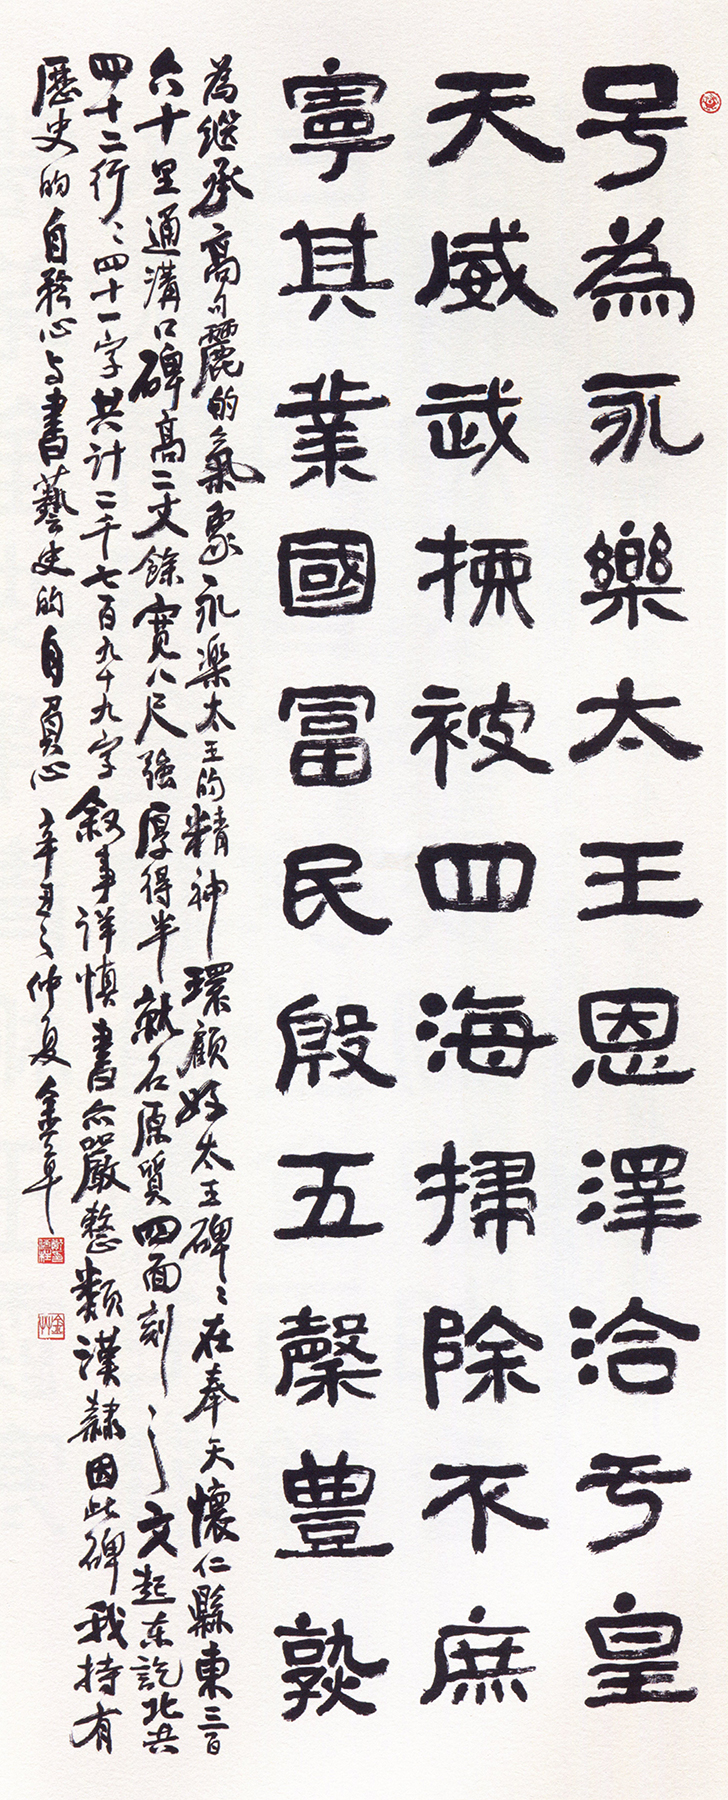 号為永樂太王恩澤洽于皇
天威武拣被四海掃除不庶
寧其業國富民殷五穀豊熟
為继承高句麗的氣象永樂太王的精神環顧好太王碑〻在奉天懷仁縣東三百
六十里通溝口碑高二丈餘寛八尺強厚得半就石原質四面刻之文起東訖北共
四十二行〻四十一字共計二千七百九十九字叙事詳慎書亦嚴整類漢隸因此碑我持有
歷史的自矜心与書藝史的自負心辛丑之仲夏